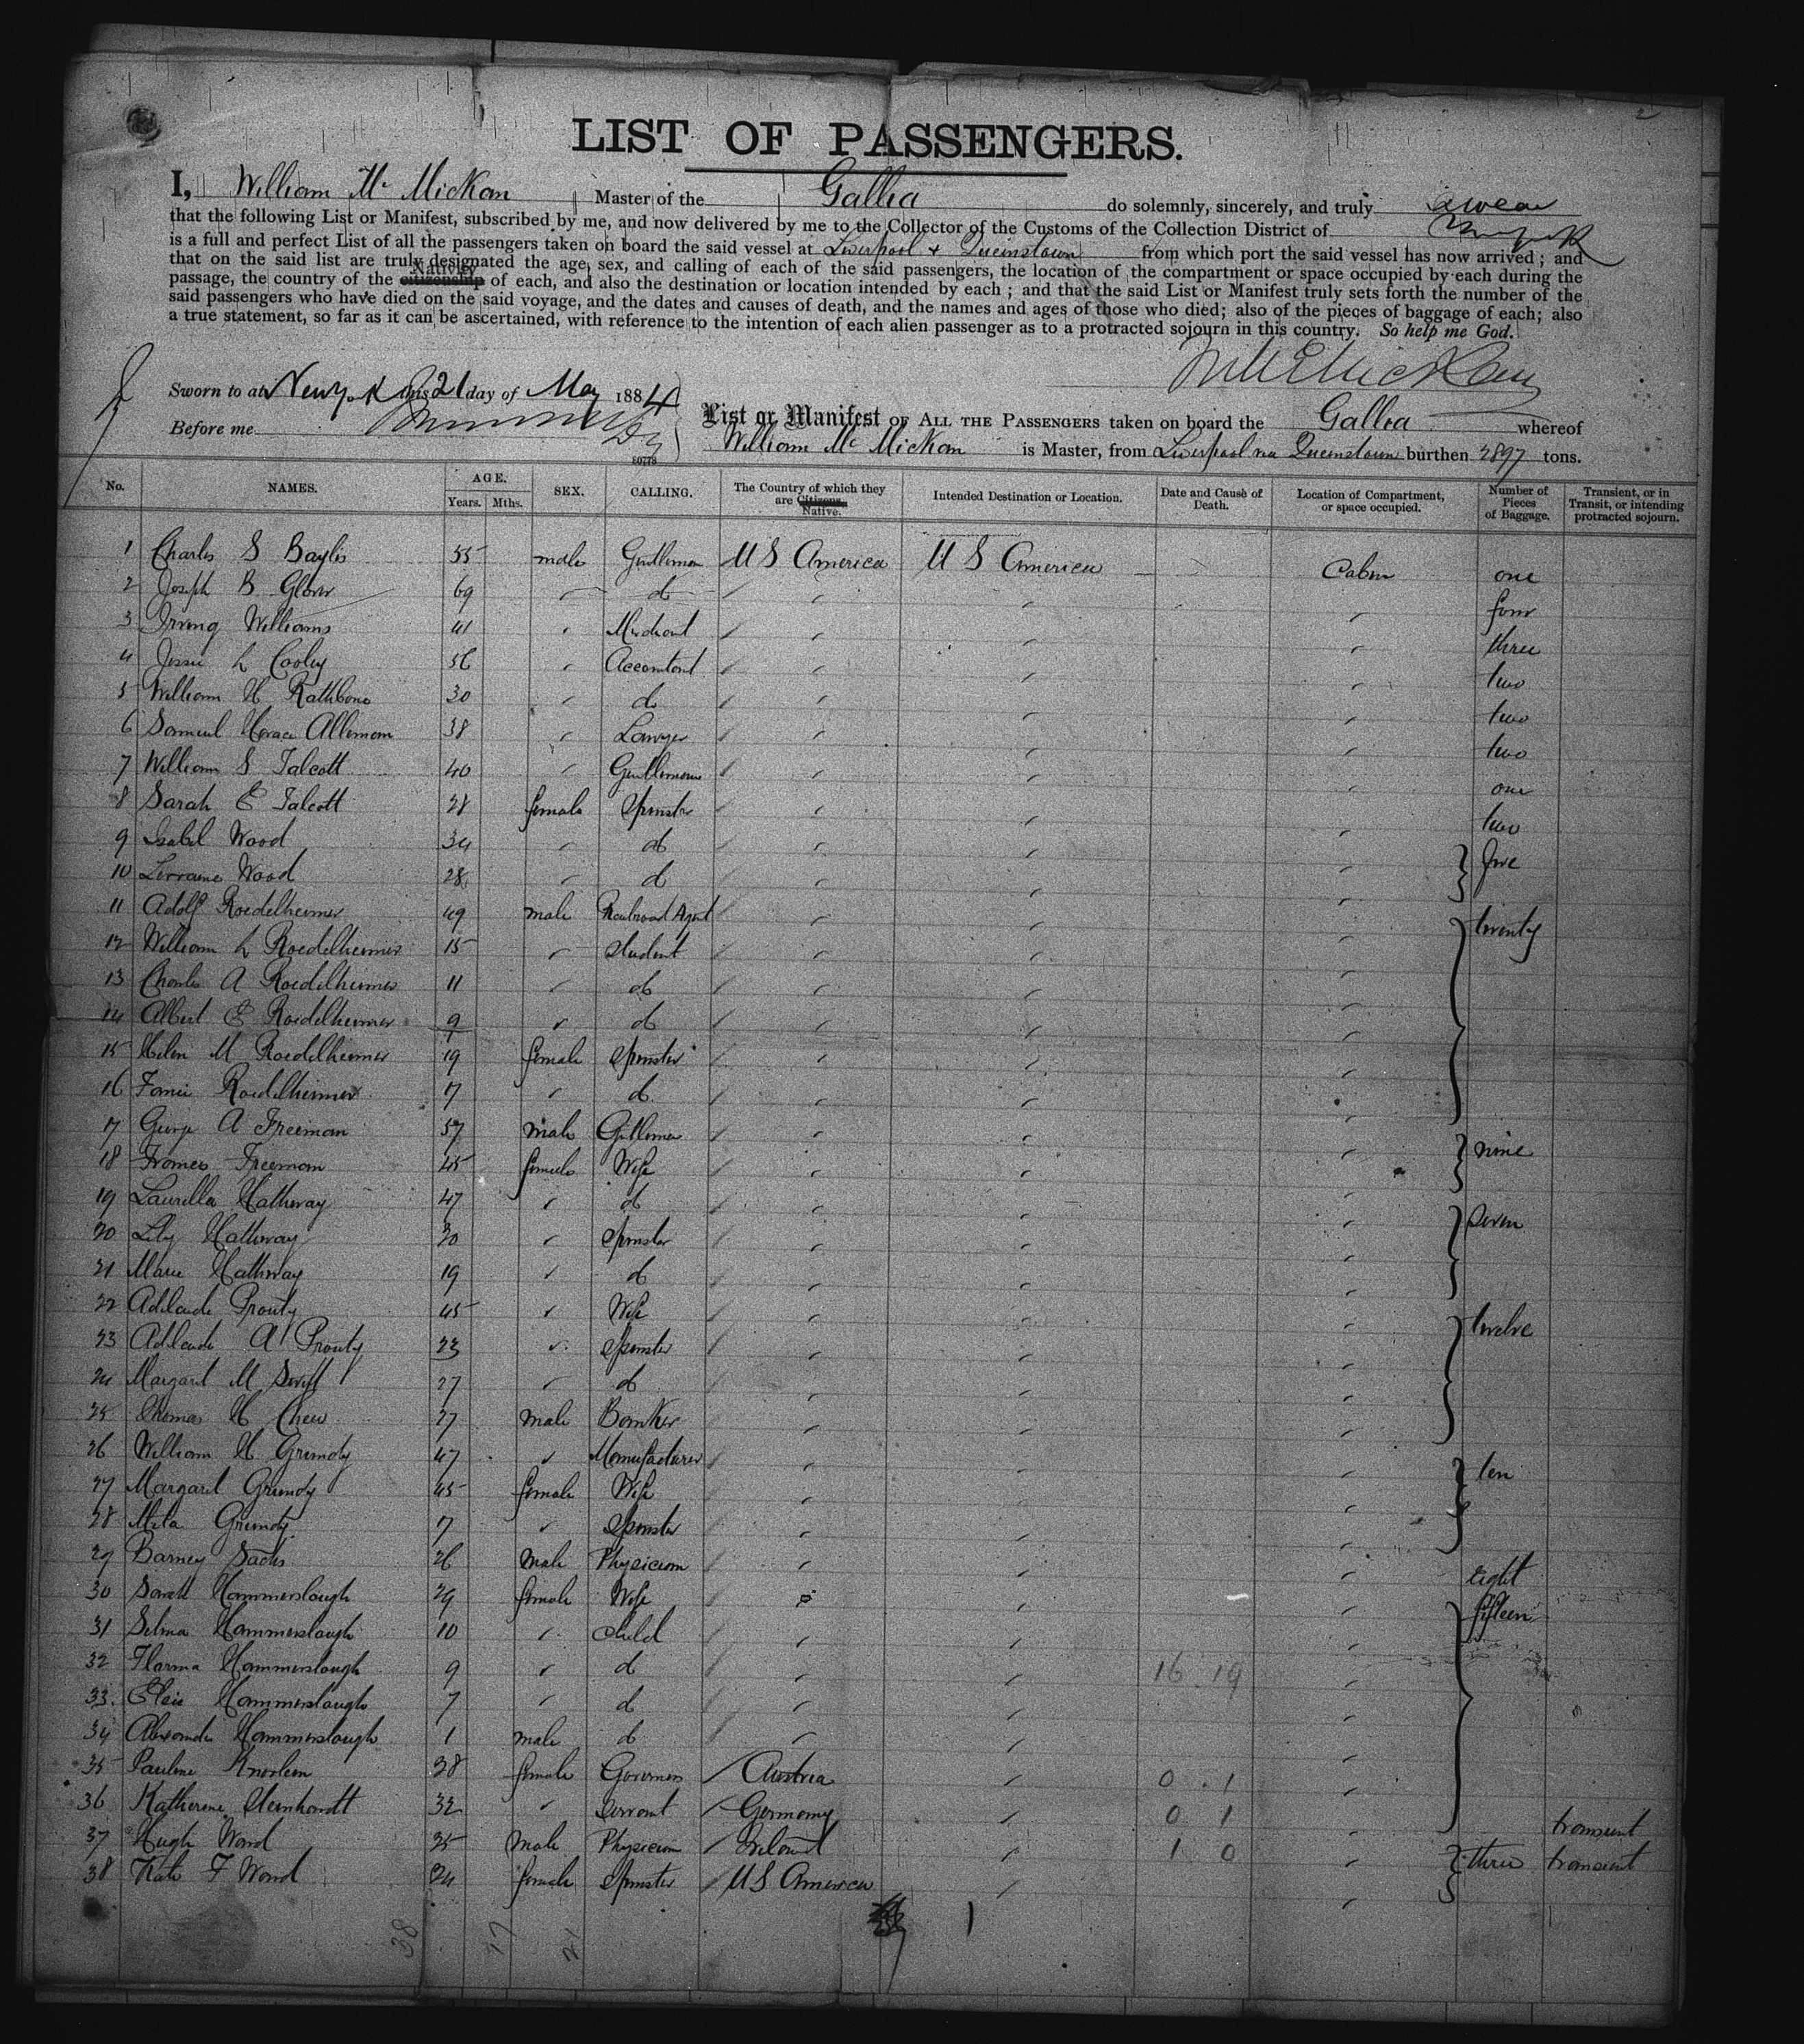 2
LIST OF PASSENGERS.
I, William Mc Mickan Master of the Gallia do solemnly, sincerely, and truly swear
that the following List or Manifest, subscribed by me, and now delivered by me to the Collector of the Customs of the Collection District of
is a full and perfect List of all the passengers taken on board the said vessel at Liverpool & Queenstown from which port the said vessel has now arrived; and
that on the said list are truly designated the age, sex, and calling of each of the said passengers, the location of the compartment or space occupied by each during the
Nativity
passage, the country of the citizenship of each, and also the destination or location intended by each; and that the said List or Manifest truly sets forth the number of the
said passengers who have died on the said voyage, and the dates and causes of death, and the names and ages of those who died; also of the pieces of baggage of each; also
a true statement, so far as it can be ascertained, with reference to the intention of each alien passenger as to a protracted sojourn in this country. So help me God.
Sworn to at New York this 21 day of May 1884
Before me
List or Manifest OF ALL THE PASSENGERS taken on board the Gallia whereof
William Mc Mickan is Master, from Liverpool via Queenstown burthen 2897 tons.
No. NAMES. AGE. Years. Mths. SEX. CALLING. The Country of which they are Citizens. Native. Intended Destination or Location. Date and Cause of Death. Location of Compartment, or space occupied. Number of Pieces of Baggage. Transient, or in Transit, or intending protracted sojourn.
1 Charles S Baylis 55 male Gentleman U S America U S America Cabin one
2 Joseph B Glover 69 do four
3 Irving Williams 41 Merchant three
4 Jessie L Cooley 36 Accomtant two
5 William H Rathbone 30 do two
6 Samuel Horace Alleman 38 Lawyer two
7 William S Talcott 40 Gentleman one
8 Sarah E Talcott 28 female Spinster two
9 Isabel Wood 34 do five
10 Lorraine Wood 28 do
11 Adolf Roedelheimer 49 male Railroad Agent twenty
12 William L Roedelheimer 15 student
13 Charles A Roedelheimer 11 do
14 Albert E Roedelheimer 9 do
15 Helen M Roedelheimer 19 female Spinster
16 Fanie Roedelheimer 17 do
17 George A Freeman 57 male Gentleman nine
18 Frances Freeman 45 female Wife
19 Laurilla Hathway 47 do seven
20 Lily Hathway 20 Spinster
21 Marie Hathway 19 do
22 Adelaide Prouty 45 Wife twelve
23 Adelaide A Prouty 23 Spinster
24 Margaret M Swift 27 do
25 Thomas H Chew 27 male Banker
26 William H Grundy 47 Manufacturer ten
27 Margaret Grundy 45 female Wife
28 Meta Grundy 17 Spinster
29 Barney Sachs 26 male Physician eight
30 Sarah Hammerslough 29 female Wife fifteen
31 Selma Hammerslough 10 child
32 Hammerslough 9 do 16 . 19
33 Elsie Hammerslough 7 do
34 Alexander Hammerslough 1 male do
35 Pauline 28 female Governess Austria 0 . 1
36 Katherine 32 Servant Germany 0 1 transient
37 Hugh Ward 25 male Physician Ireland 1 0 three transient
38 Kate F Ward 24 female Spinster U S America
38 17 21 1